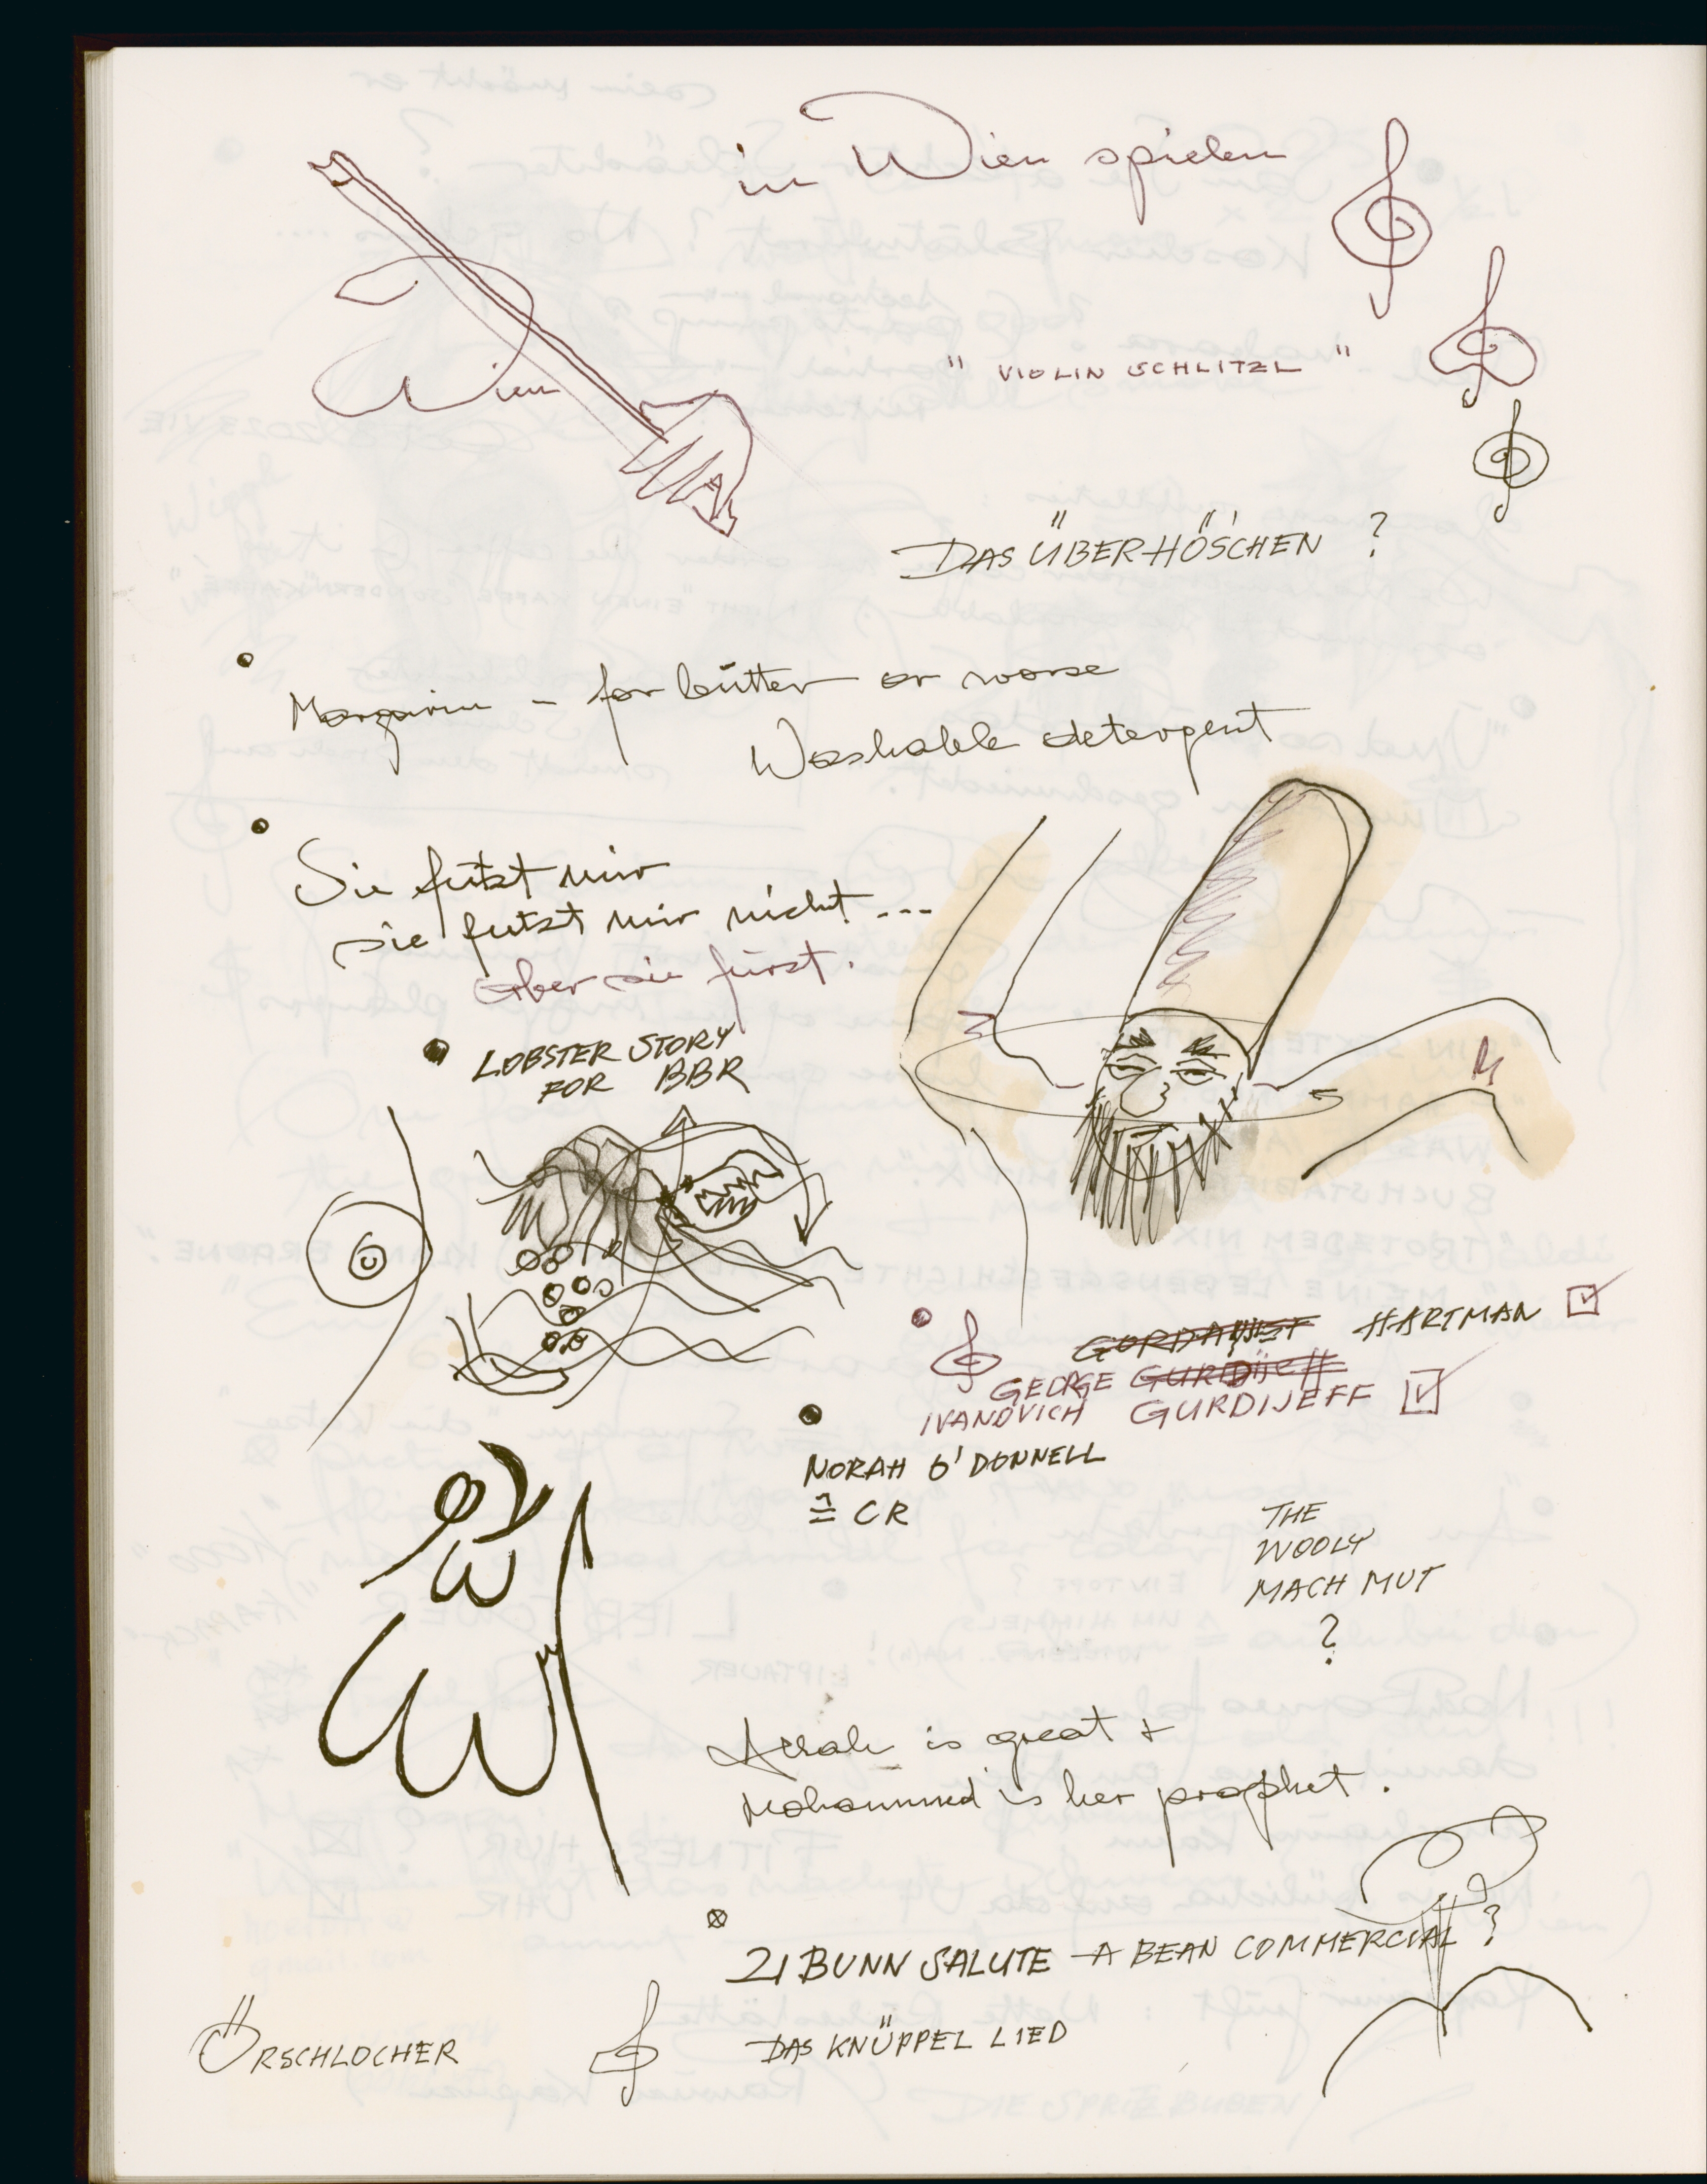 in Wien spielen
Wien
" VIOLIN SCHLITZL "
DAS ÜBERHÖSCHEN ?
Margarin - for bütter or worse
Washable detergent
Sie futzt mir
sie futzt mir nicht ...
aber sie furzt.
LOBSTER STORY
FOR BBR
HARTMAN
GEORGE GURDIJEFF
IVANOVICH GURDIJEFF
NORAH O'DONNELL
≙ CR
THE
WOOLY
MACH MUT
?
is great +
Mohammed is her prophet.
21 BUNN SALUTE - A BEAN COMMERCIAL ?
ÖRSCHLOCHER
DAS KNÜPPEL LIED